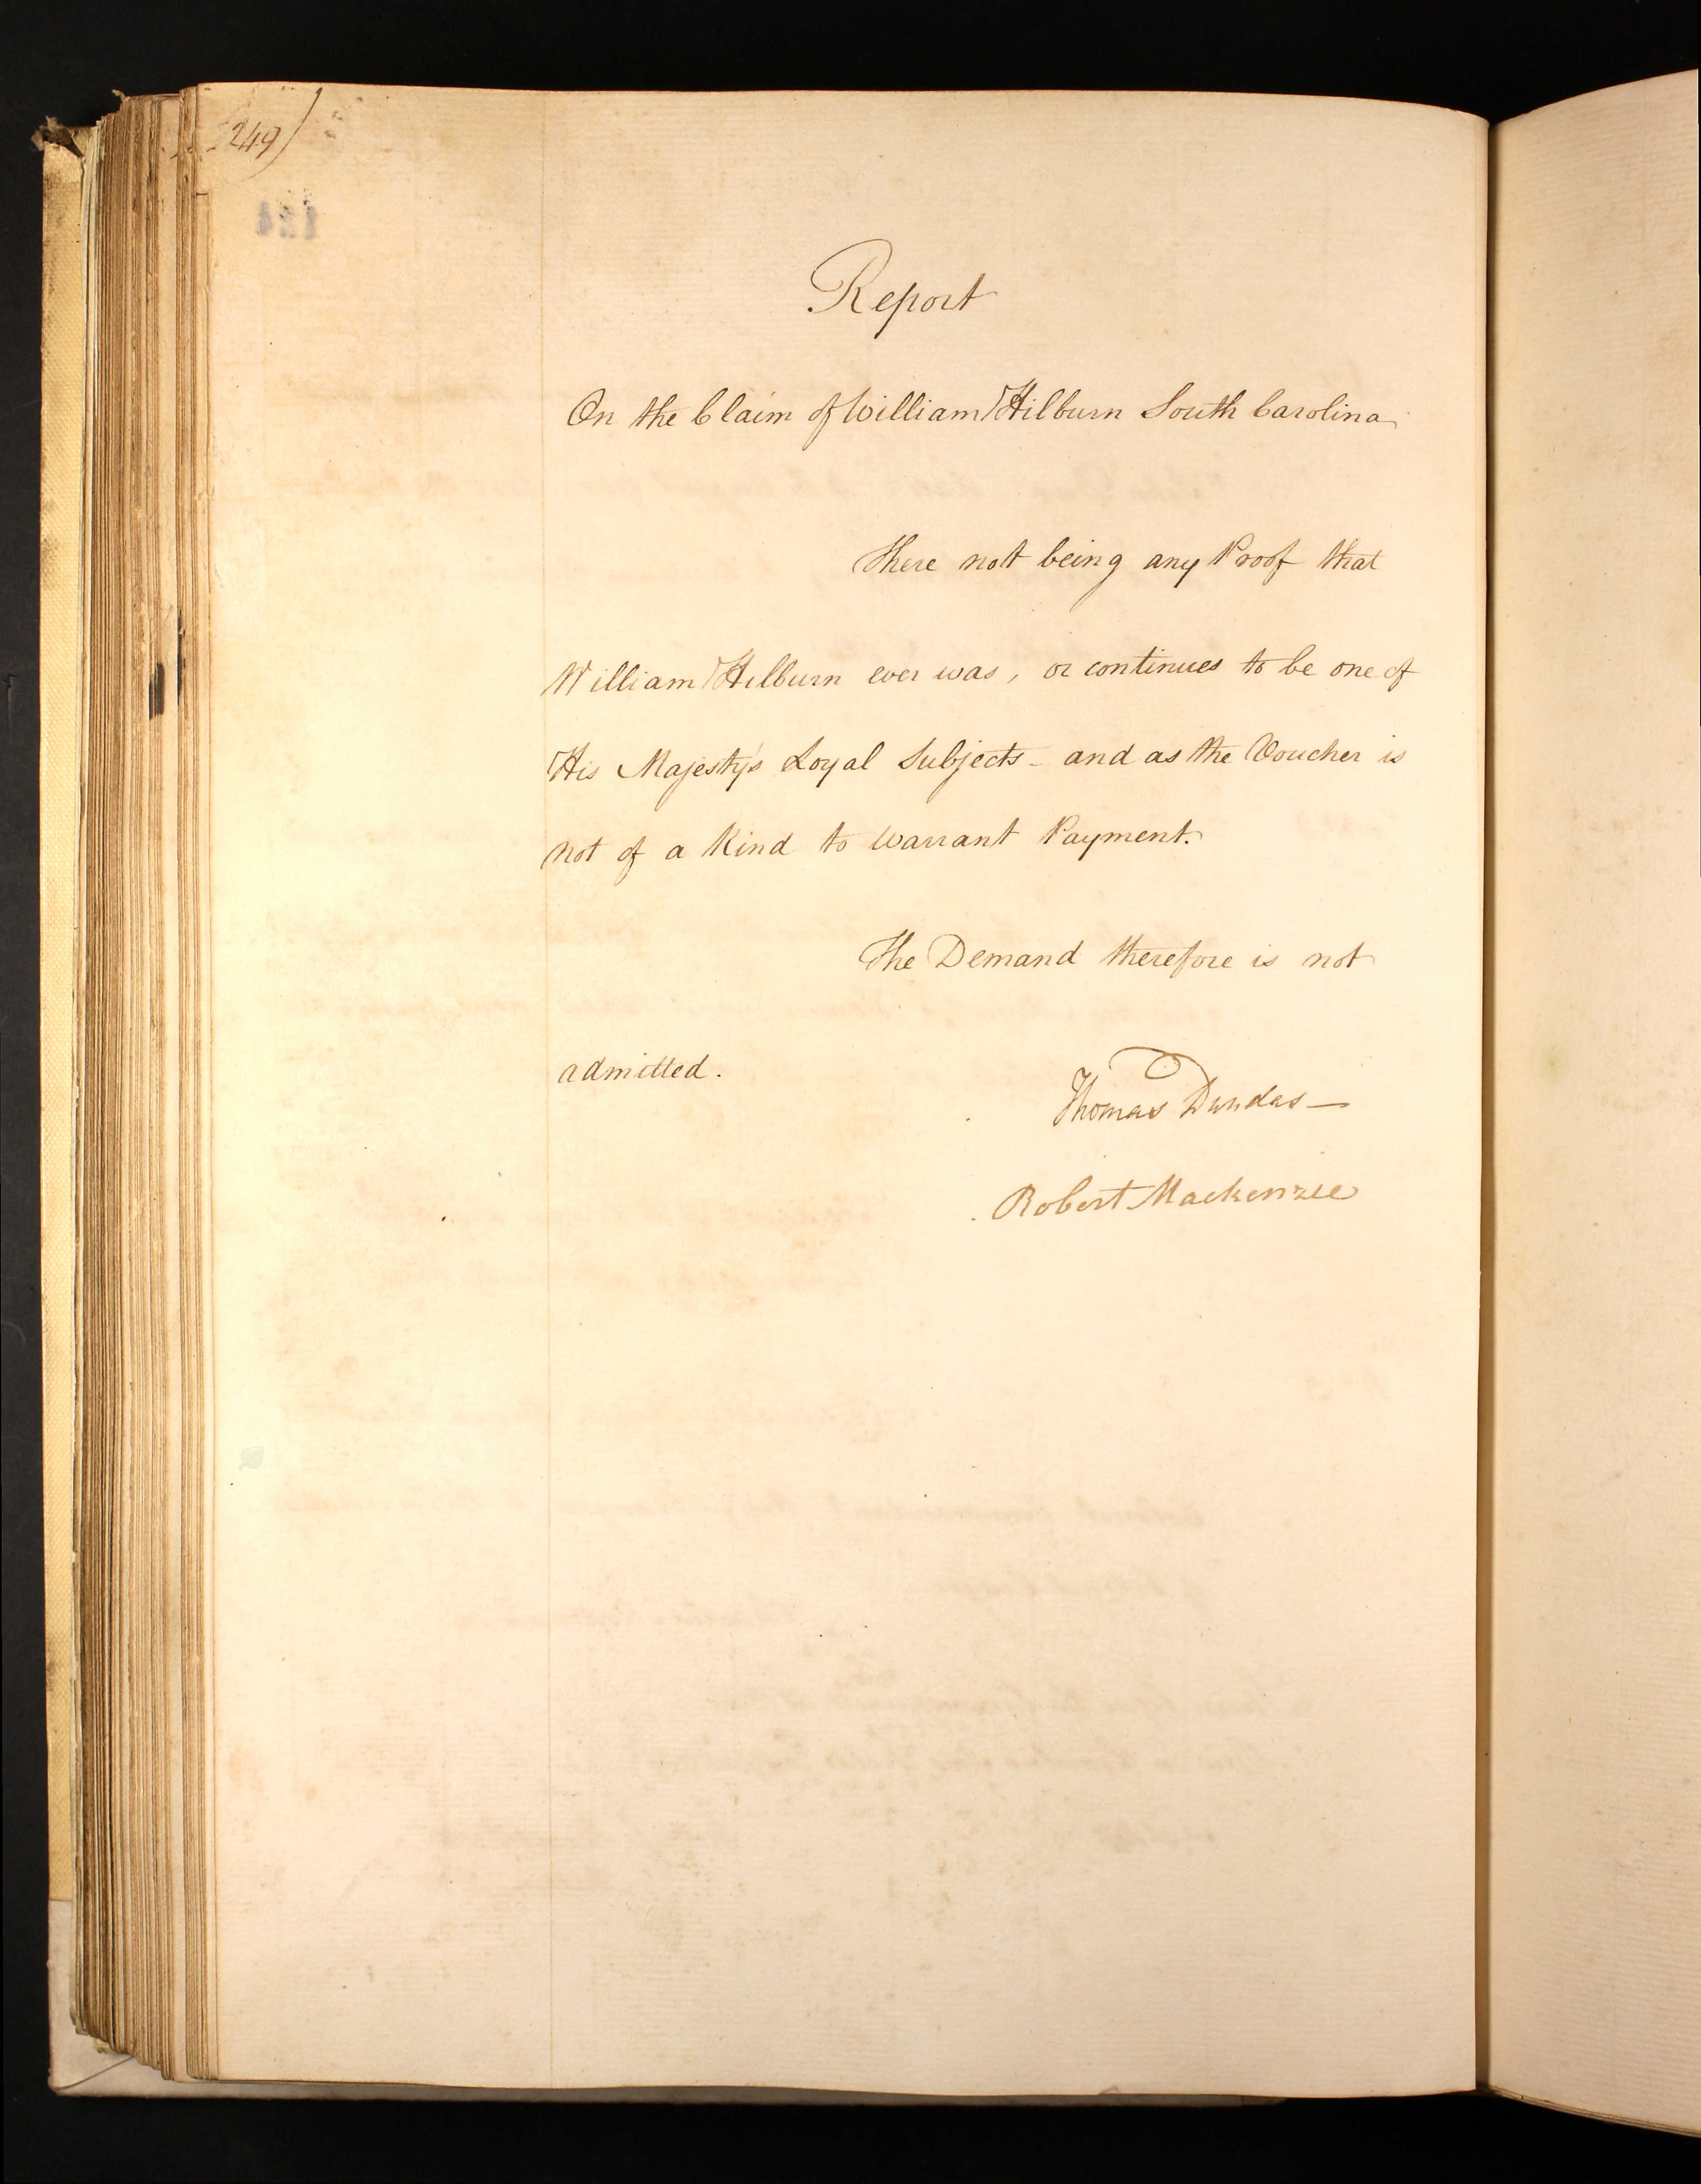 249)
Report
On the Claim of William Hilburn South Carolina
There not being any Proof that
William Hilburn ever was, or continues to be one of
His Majesty's Loyal Subjects - and as the Voucher is
not of a Kind to Warrant Payment.
The Demand therefore is not
admitted.
Thomas Dundas —
Robert Mackenzie